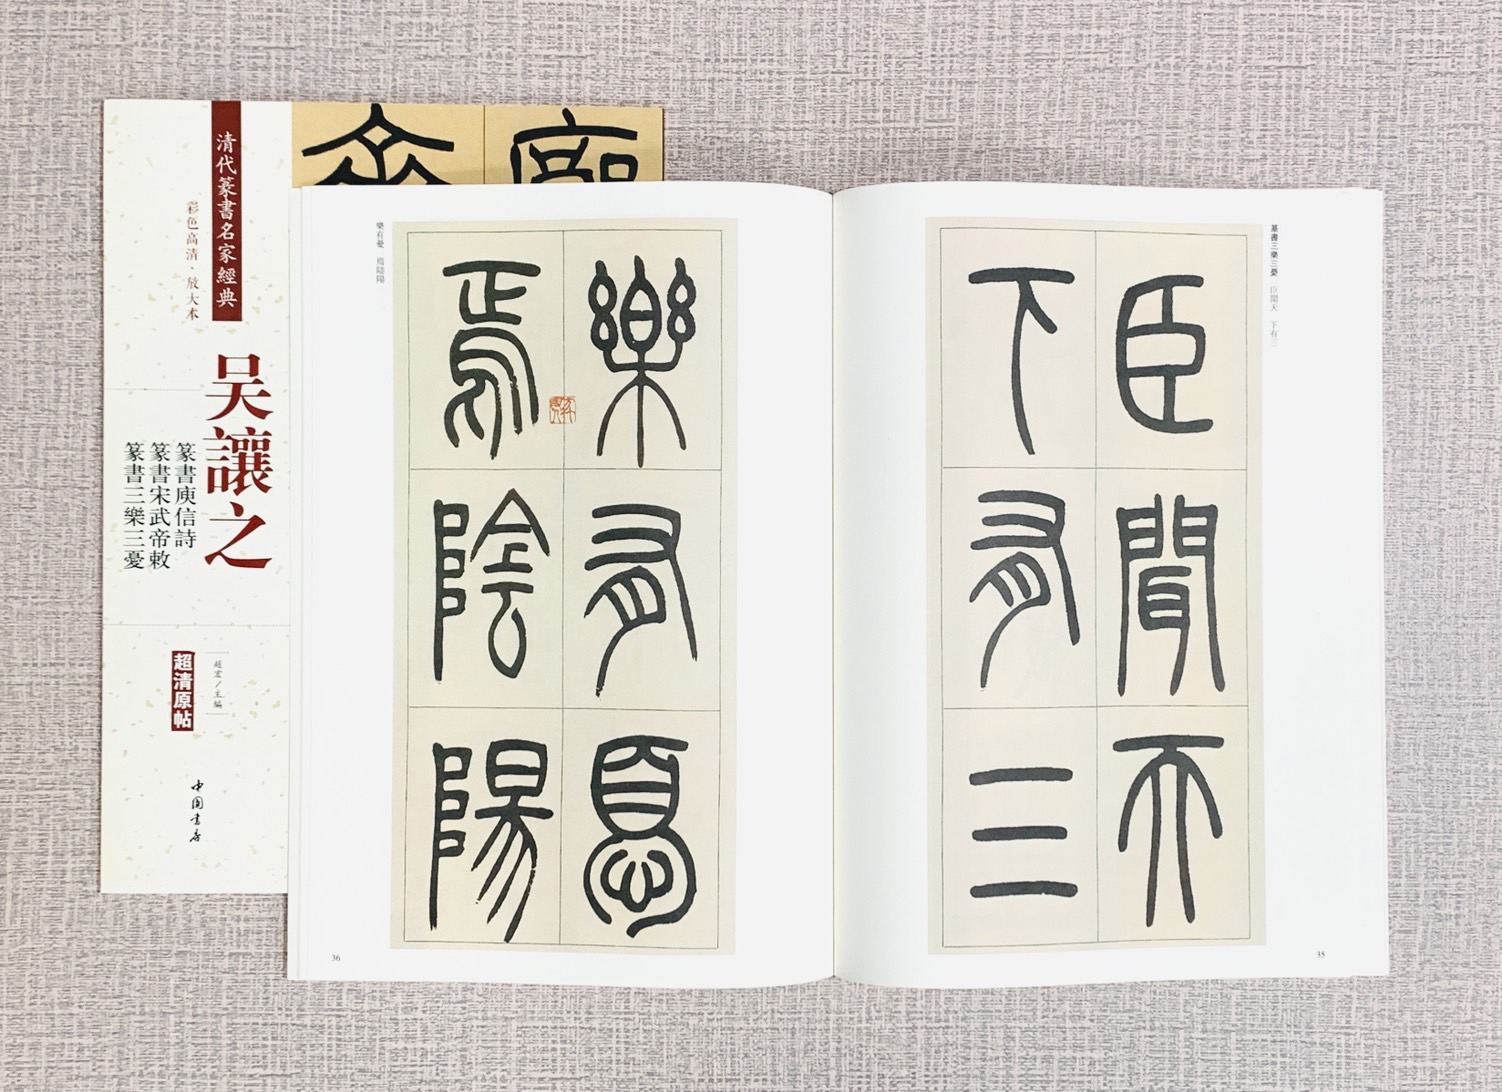 清代篆書名家經典
彩色高清·放大本
吴讓之
篆書庾信詩
篆書宋武帝敕
篆書三樂三憂
趙宏／主編
超清原帖
中國書店
篆書三樂三憂 臣聞天 下有三
臣聞天
下有三
35
樂有憂
焉陰陽
樂有憂 焉陰陽
36